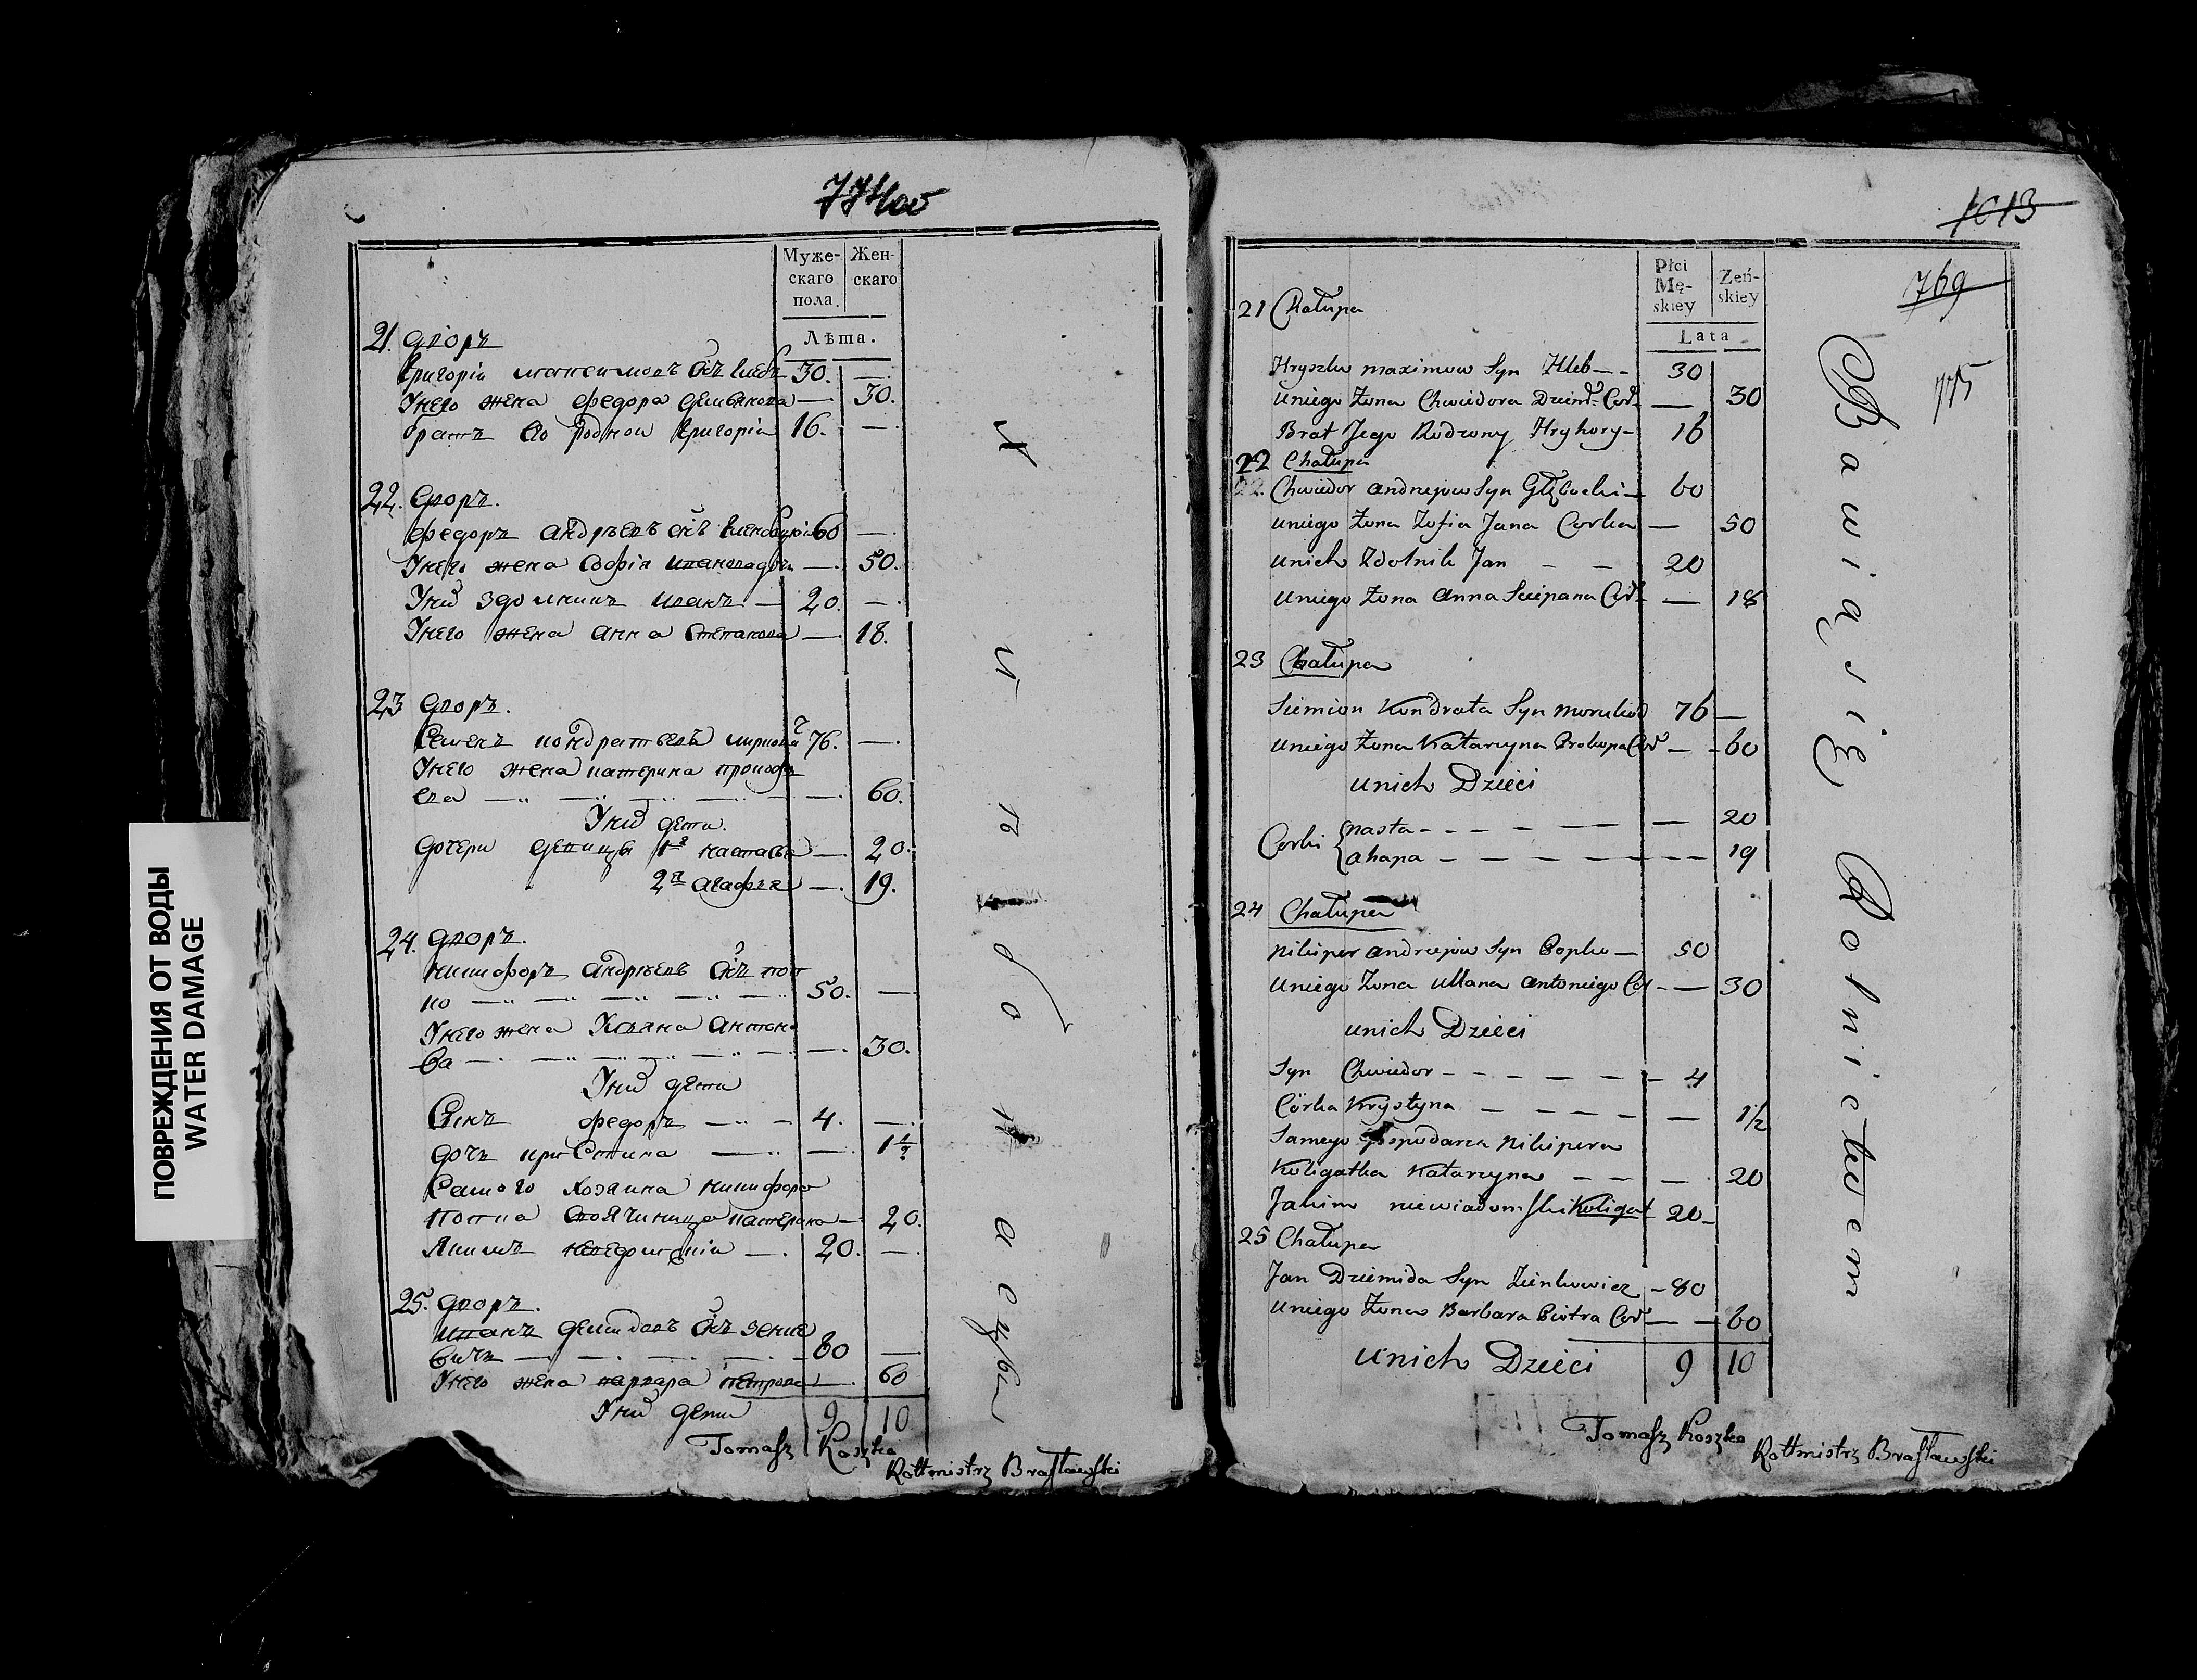 ПОВРЕЖДЕНИЯ ОТ ВОДЫ
WATER DAMAGE
774об
Муже-
скаго
пола.
Жен-
скаго
Лѣта.
21. Дворъ
Григорій Максимовъ Снъ Глебъ 30. —
Унего жена Федора Демьянова — 30.
братъ Его Родной Григорій 16. —
22. Дворъ.
Федоръ Андрѣевъ снъ 60 —
Унего жена Софія Иванова дочь — 50.
Унихъ здолникъ Иванъ — 20. —
Унего жена Анна Степанова — 18.
23 Дворъ.
Семенъ Кондратьевъ 76. —
Унего жена Катерина Прокофь
ева — 60.
Унихъ дети.
Дочери Девицы 1я Настасья — 20.
2я Агафья — 19.
24. Дворъ.
Никифоръ Андрѣевъ Снъ Поп
ко — 50. —
Унего жена Уляна Антоно
ва — 30.
Унихъ дети
Сынъ Федоръ — 4. —
Дочь Кристина — 1 1/2
Самого Хозаина Никифора
Катерина — 20.
Якимъ 20. —
25. Дворъ.
Иванъ Демидовъ Снъ Зенке
вичъ — 80 —
Унего жена Варвара Петрова — 60
Унихъ дети 9 10
Tomasz Koszko
Rottmistrz Brasławski
хлебопа
1013
769
775
Płci
Mę-
skiey
Żeń-
skiey
Lata
21 Chałupa
Hryszko Maximow Syn Hleb — 30
Uniego Żona Chwiedora Dziemid Cór — 30
Brat Jego Rodzony Hryhory — 16
22 Chałupa
Chwiedor Andrejow Syn Głębocki — 60
Uniego Żona Zofia Jana Corka — 50
Unich Zdolnik Jan — 20
Uniego Żona Anna Sciepana Cór — 18
23 Chałupa
Siemion Kondrata Syn 76 —
Uniego Żona Katarzyna Prokopa Cór — 60
Unich Dzieci
Corki { Nasta — 20
Ahapa — 19
24 Chałupa
Nikiper Andrejow Syn Popko — 50
Uniego Żona Ullana Antoniego Cór — 30
Unich Dzieci
Syn Chwiedor — 4
Córka Krystyna — 1½
Samego Gospodarza Nikipera
Koligatka Katarzyna — 20
Jakim niewiadomski Koligat 20
25 Chałupa
Jan Dziemida Syn Zienkowicz — 80
Uniego Żona Barbara Piotra Cór — 60
Unich Dzieci 9 10
Bawią się Rolnictwem
Tomasz Koszko
Rottmistrz Brasławski